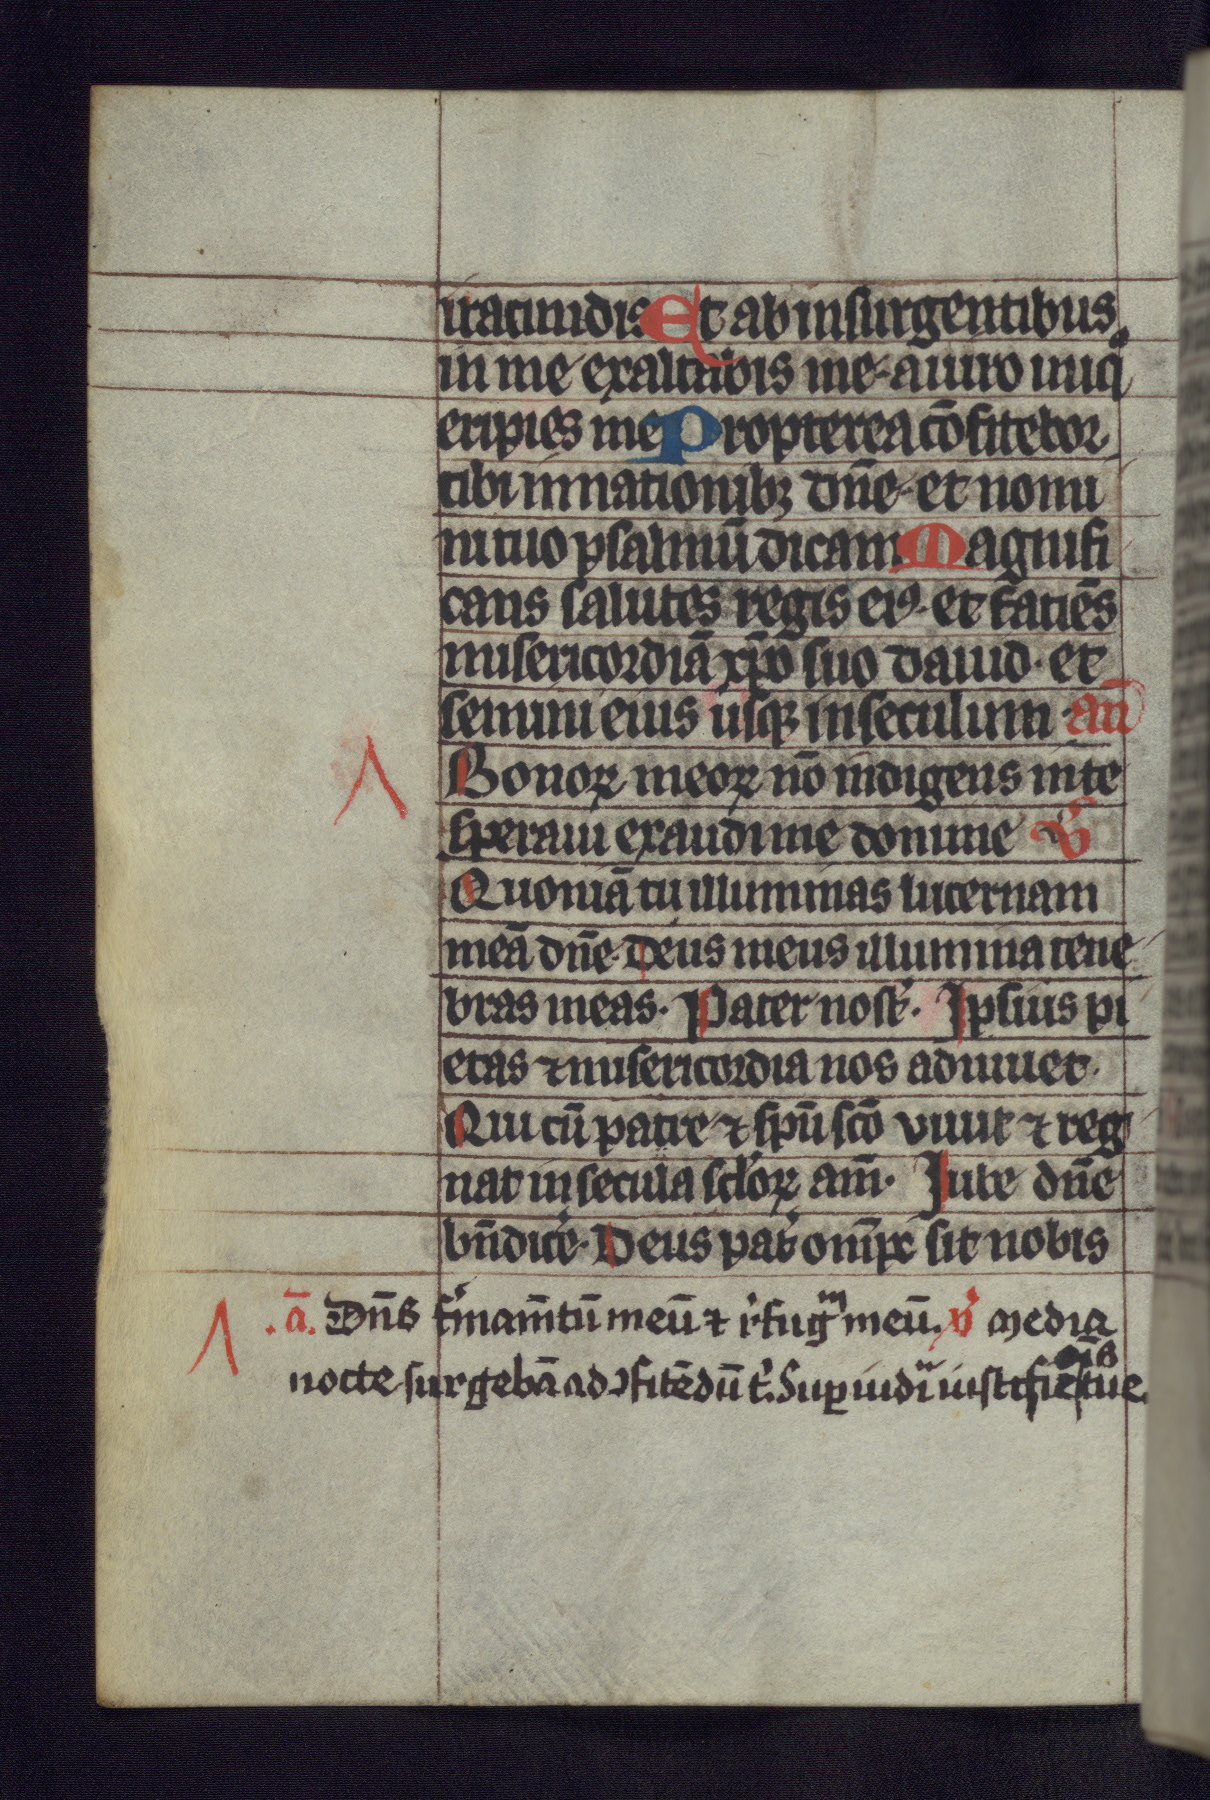 iracundis Et ab insurgentibus
in me exaltabis me. a uiro iniq̄
eripies me Propterea cōfitebor
tibi in nationibꝫ dn̄e. et nomi
ni tuo psalmū dicam Magnifi
cans salutes regis eiꝰ. et faciēs
misericordiā xp̄o suo dauid. et
semini eius usqꝫ in seculum. an̄
Bonoꝝ meoꝝ nō indigens in te
speraui exaudi me domine v̓
Quoniā tu illuminas lucernam
meā dn̄e. Deus meus illumina tene
bras meas. Pater nost̓. Ipsius pi
etas ⁊ misericordia nos adiuuet.
Qui cū patre ⁊ sp̄u sc̄o viuit ⁊ reg
nat in secula sc̓loꝝ am̄. Iube dn̄e
bn̄dice̓. Deus pat̓ om̄ps sit nobis
.ā. Dn̄s f̓mam̄tū meū ⁊ r̓fugͫ meū. v̓ Media
nocte surgebā ad ꝯfitēdū t̓. Suꝑ iudiͣ iustificōis tue.